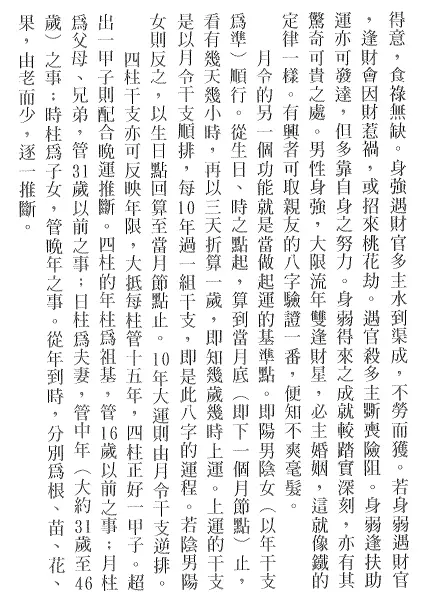 得意，食祿無缺。身強遇財官多主水到渠成，不勞而獲。若身弱遇財官
，逢財會因財惹禍，或招來桃花劫。遇官殺多主斲喪險阻。身弱逢扶助
運亦可發達，但多靠自身之努力。身弱得來之成就較踏實深刻，亦有其
驚奇可貴之處。男性身強，大限流年雙逢財星，必主婚姻，這就像鐵的
定律一樣。有興者可取親友的八字驗證一番，便知不爽毫髮。
月令的另一個功能就是當做起運的基準點。即陽男陰女（以年干支
為準）順行。從生日、時之點起，算到當月底（即下一個月節點）止，
看有幾天幾小時，再以三天折算一歲，即知幾歲幾時上運。上運的干支
是以月令干支順排，每10年過一組干支，即是此八字的運程。若陰男陽
女則反之，以生日點回算至當月節點止。10年大運則由月令干支逆排。
四柱干支亦可反映年限，大抵每柱管十五年，四柱正好一甲子。超
出一甲子則配合晚運推斷。四柱的年柱爲祖基，管16歲以前之事；月柱
爲父母、兄弟，管31歲以前之事；日柱爲夫妻，管中年（大約31歲至46
歲）之事；時柱爲子女，管晚年之事。從年到時，分別爲根、苗、花、
果，由老而少，逐一推斷。